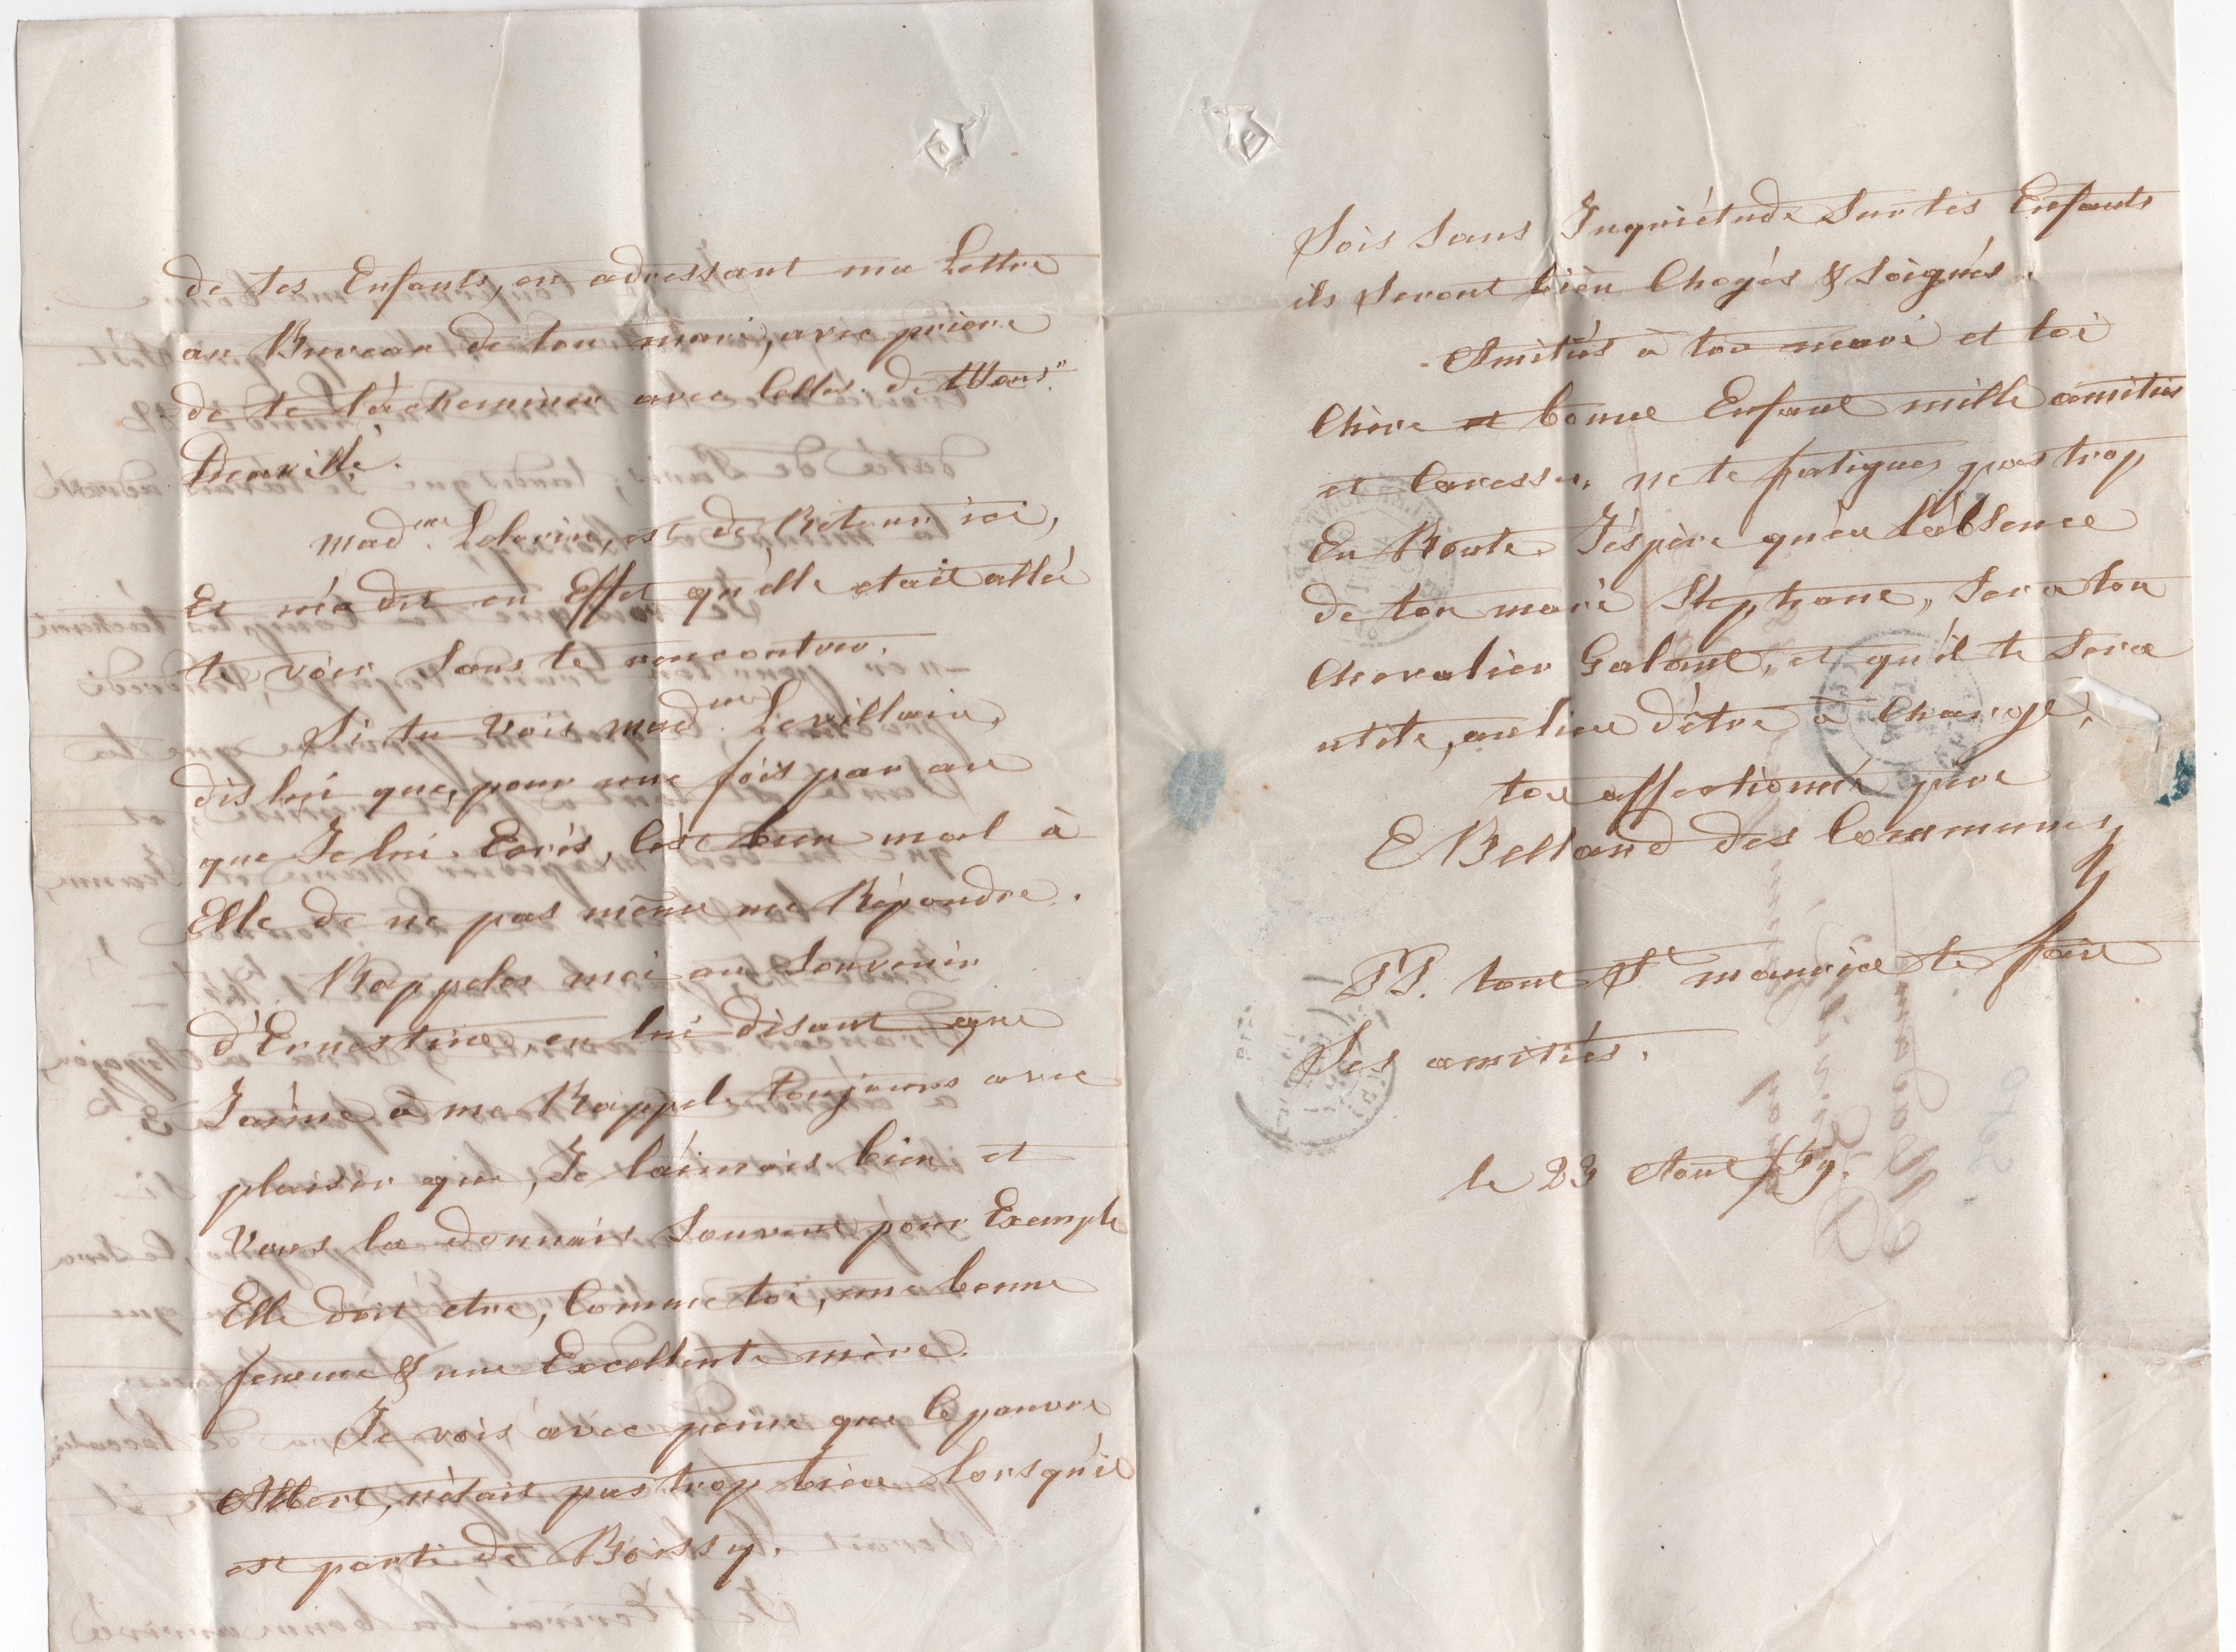 de tes Enfants, en adressant ma Lettre
au Bureau de ton mari, avec prière
de te l'acheminer avec celles de Mons.r
Duavillé.
mad.me Lelorin, est de Retour ici,
Et m'a dit en Effet qu'elle etait allée
te voir sans te rencontrer.
Si tu vois mad.me Levillain,
dis lui que, pour une fois par an
que Je lui Ecris, c'est bien mal à
Elle de ne pas même me Répondre.
Rappeles moi au Souvenir
d'Ernestine, en lui disant que
J'aime à me Rappeler toujours avec
plaisir que, Je l'aimais bien et
Vous la donnais Souvent pour Exemple
Elle doit etre, Comme toi, une bonne
femme & une Excellente mère.
Je vois avec peine que le pauvre
Albert, n'était pas trop bien lorsqu'il
est parti de Boissy.
Sois Sans Inquiétude Sur tes Enfants
ils seront bien Choyés & Soignés.
Amitiés à ton mari et toi
Chère et bonne Enfant mille amitiés
et Caresses, ne te fatigues pas trop
En Route. J'éspère qu'en l'absence
de ton mari Stephane, Sera ton
chevalier Galant, et qu'il te Sera
utile, au lieu d'être à Charge.
ton affectionné père
E Belland des Communes
PS. tout St maurice te fait
Ses amitiés.
le 23 Aout /59.